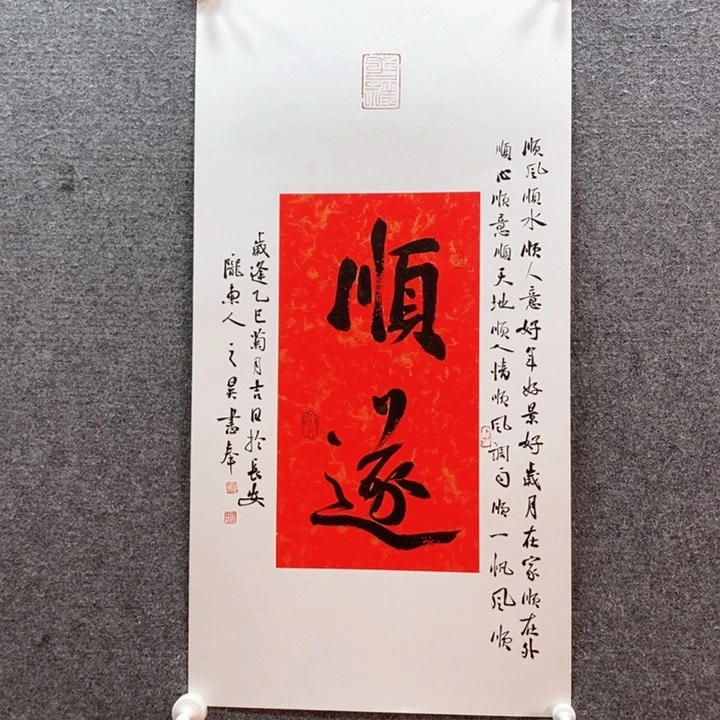 顺风順水顺人意好年好景好歲月在家順在外
順心順意順天地顺人情顺风調雨顺一帆风顺
順遂
歲逢乙巳菊月吉日於長安
隴東人之昊書奉